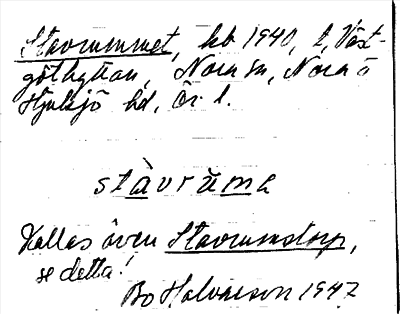 Stavrummet, kb 1940, t, Väst-
götbyttan, Nora sn, Nora o
Hjulsjö hd, Ör l.
stàvrŭmə
Kallas även Stavrumstorp,
se detta!
Bo Halvarson 1947